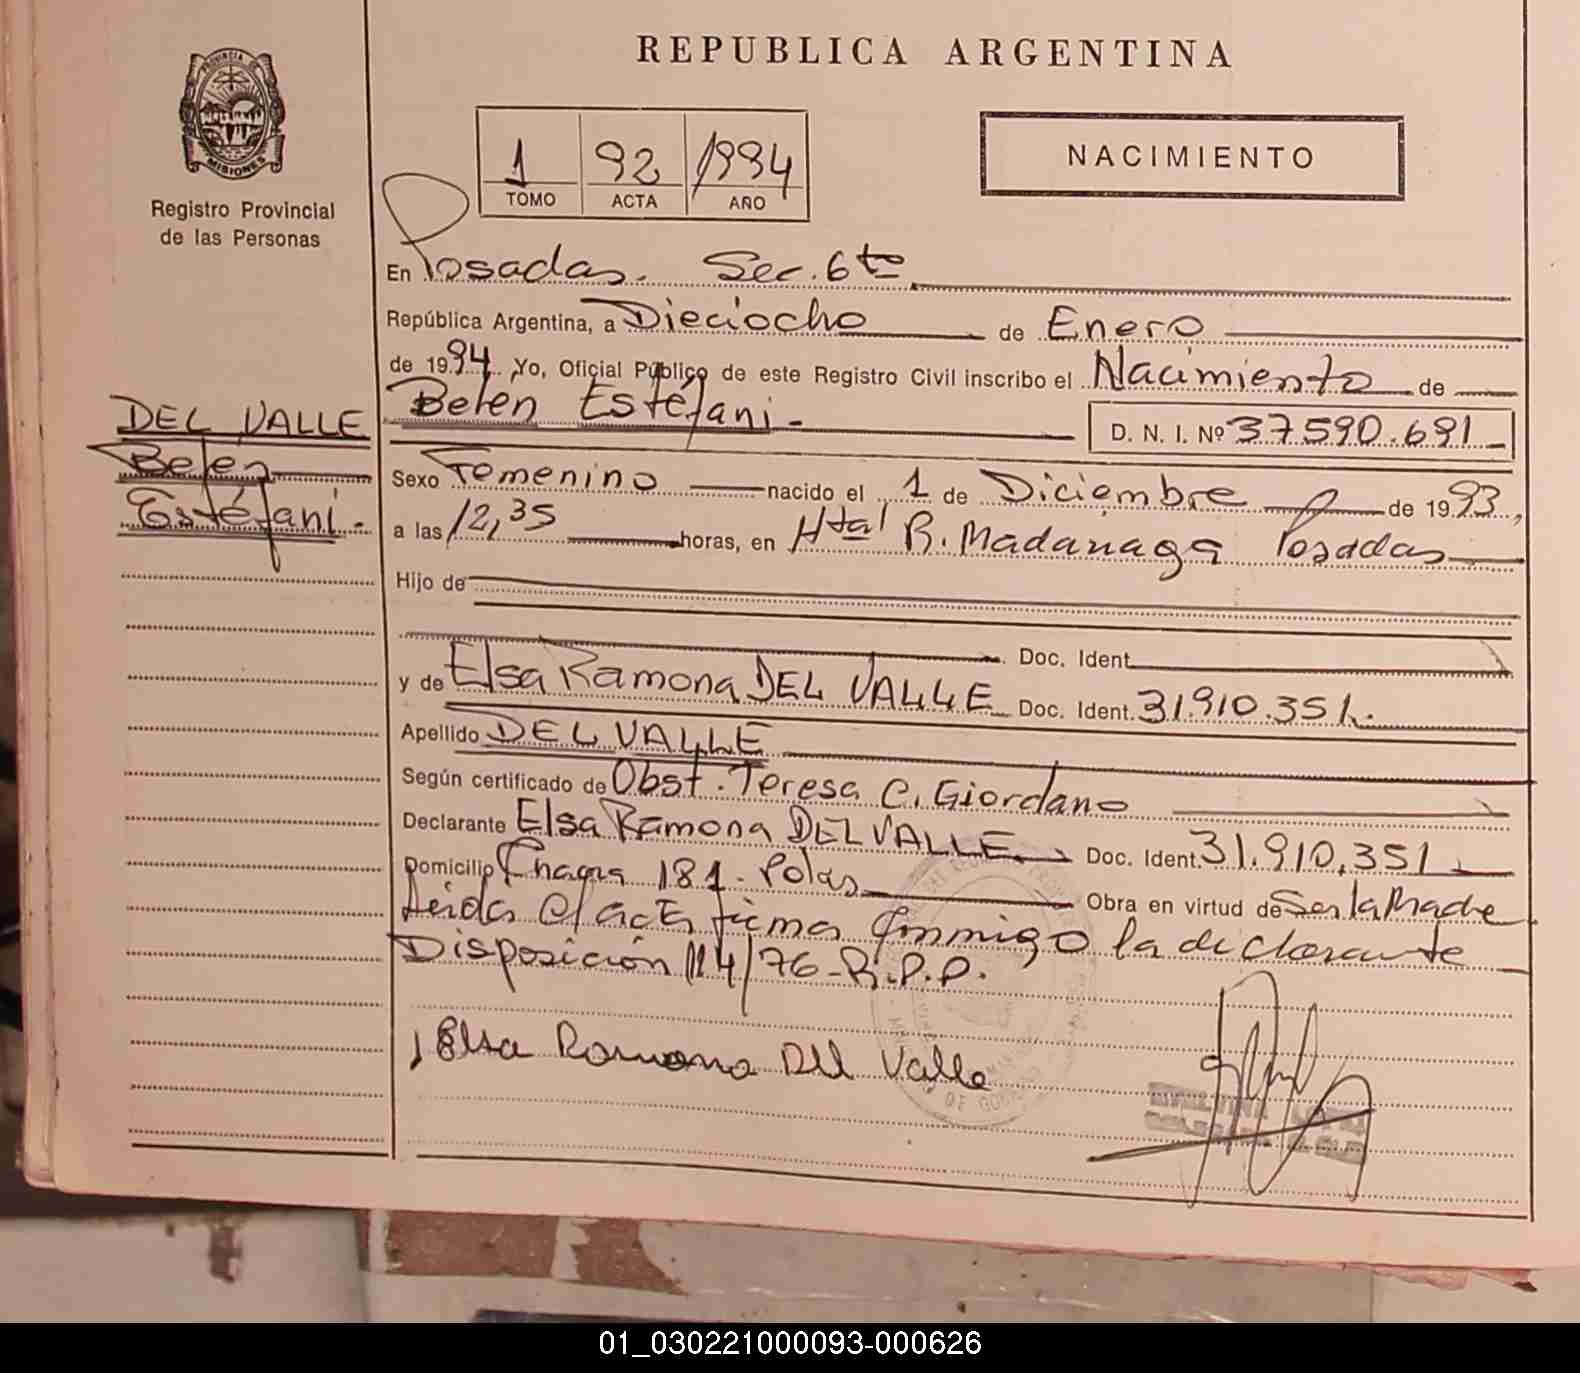 REPUBLICA ARGENTINA
PROVINCIA DE
MISIONES
Registro Provincial
de las Personas
1 92 1994
TOMO ACTA AÑO
NACIMIENTO
En Posadas. Sec. 6ta
República Argentina, a Dieciocho de Enero
de 1994. Yo, Oficial Público de este Registro Civil inscribo el Nacimiento de
Belen Estéfani.- D. N. I. Nº 37590.691
DEL VALLE
Belen
Estéfani.-
Sexo Femenino nacido el 1 de Diciembre de 1993,
a las 12,35 horas, en Htal R. Madariaga Posadas
Hijo de
Doc. Ident.
y de Elsa Ramona DEL VALLE Doc. Ident. 31.910.351.
Apellido DEL VALLE
Según certificado de Obst. Teresa C. Giordano
Declarante Elsa Ramona DEL VALLE. Doc. Ident. 31.910.351
Domicilio Chacra 181. Pdas Obra en virtud de Ser la Madre
Leida el acta firma conmigo la declarante
Disposición 114/76-R.P.P.
Elsa Ramona Del Valle
01_030221000093-000626